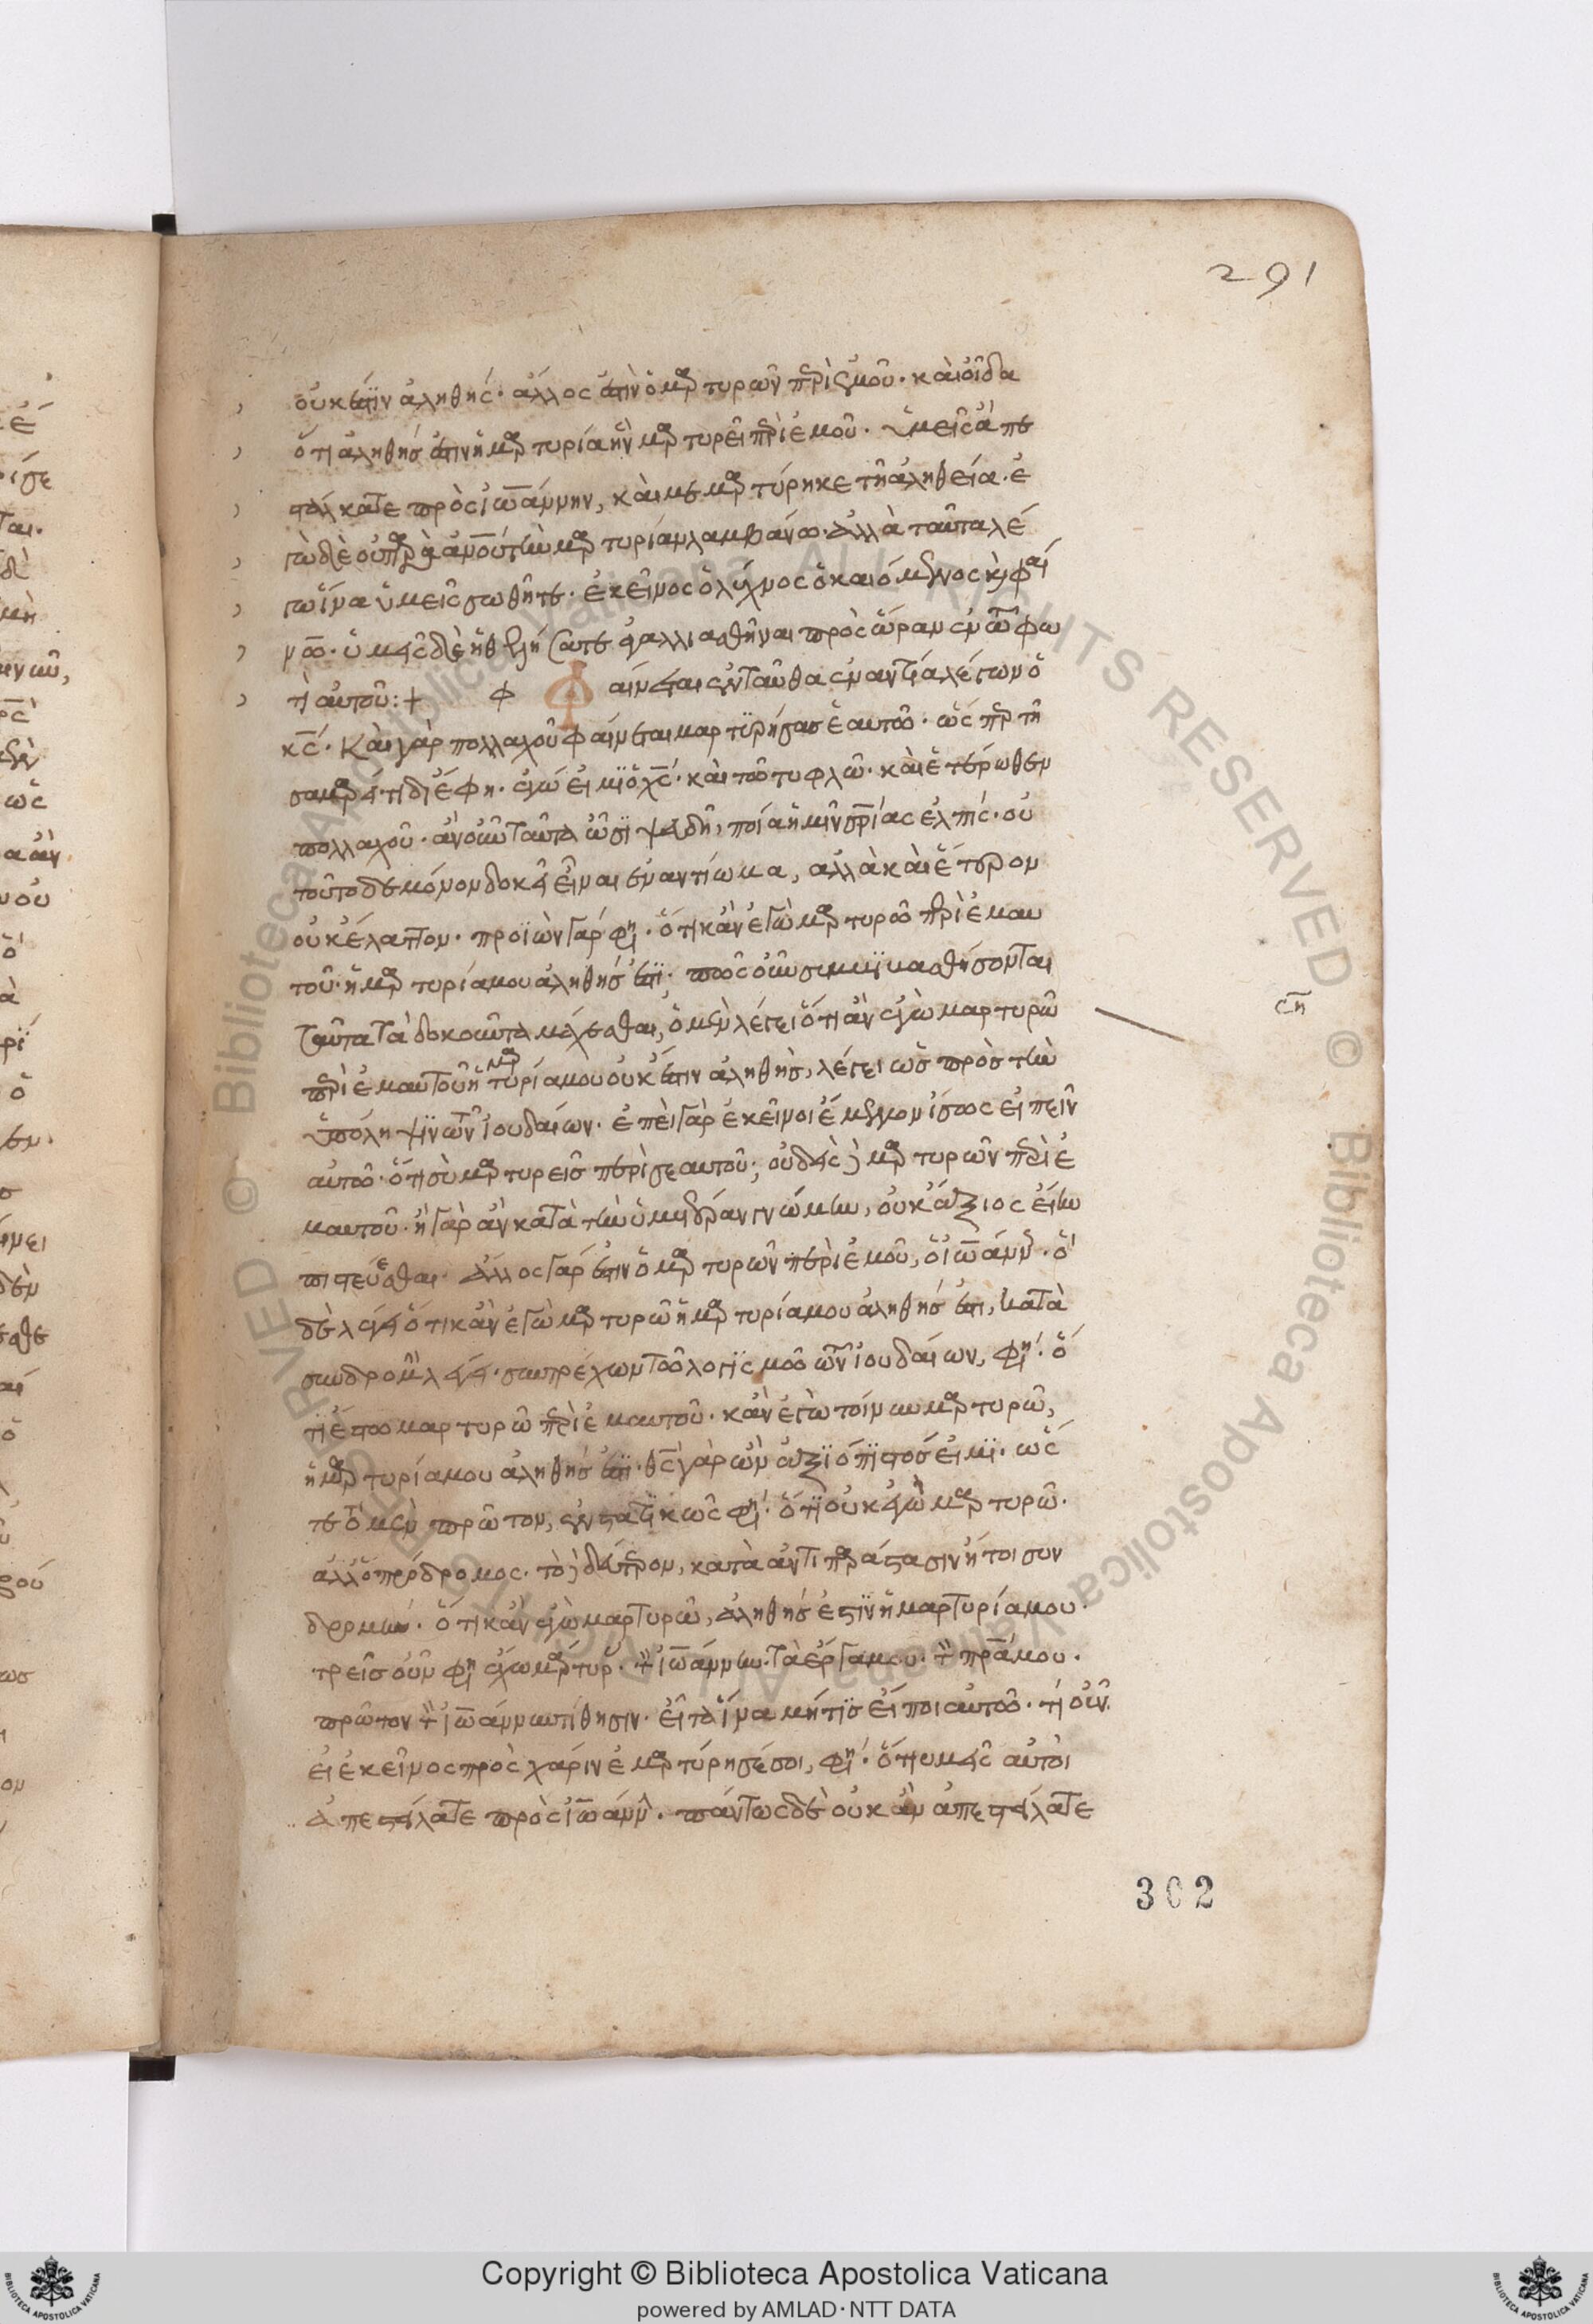 291
οὐκ ἔστιν ἀληθής· ἄλλος ἐστὶν ὁ μρτυρῶν πρὶ ἐμοῦ· καὶ οἶδα
ὅτι ἀληθής ἐστιν ἡ μρτυρία ἣν μρτυρεῖ πρὶ ἐμοῦ. ὑμεῖς ἀπε
στάλκατε πρὸς ἰωάννην, καὶ με μρτύρηκε τῆ ἀληθεία. ἐ
γὼ δὲ οὐ πρὰ ἀνου τὴν μρτυρίαν λαμβάνω. ἀλλὰ ταῦτα λέ
γω ἵνα ὑμεῖς σωθῆτε. ἐκεῖνος ὁ λύχνος ὁ καιόμενος κὶ φαί
νων. ὑμεῖς δὲ ἠθελήσατε ἀγαλλιασθῆναι πρὸς ὥραν ἐν τῶ φω
τὶ αὐτοῦ:+ φ Φαίνεται ἐνταῦθα ἐναντία λέγων ὁ
κς. Καὶ γὰρ πολλαχοῦ φαίνεται μαρτυρήσας ἑαυτῶ. ὡς πρ τῆ
σαμρείτιδι ἔφη. ἐγώ εἰμι ὁ χς. καὶ τῶ τυφλῶ. καὶ ἑτέρωθεν
πολλαχοῦ. ἂν οὖν ταῦτα ὦσι ψευδῆ, ποία ἡμῖν σρίας ἐλπίς. οὐ
τοῦτο δὲ μόνον δοκεῖ εἶναι ἐναντίωμα, ἀλλὰ καὶ ἕτερον
οὐκ ἔλαττον. προϊὼν γάρ φη. ὅτι κἂν ἐγὼ μρτυρῶ πρὶ ἐμαυ
τοῦ. ἡ μρτυρία μου ἀληθής ἐστι.
ταῦτα τὰ δοκοῦντα μάχεσθαι, ὁ μὲν λέγει ὅτι ἂν ἐγὼ μαρτυρῶ
πρὶ ἐμαυτοῦ ἡ μρτυρία μου οὐκ ἔστιν ἀληθής, λέγει ὡς πρὸς τὴν
ὑπόληψιν τῶν ἰουδαίων. ἐπεὶ γὰρ ἐκεῖνοι ἔμελλον ἴσως εἰπεῖν
αὐτῶ. ὅτι σὺ μρτυρεῖς περὶ σεαυτοῦ; οὐδεὶς δὲ μρτυρῶν πρὶ ἑ
μαυτοῦ.
πιστεύεσθαι. ἄλλος γάρ ἐστιν ὁ μρτυρῶν περὶ ἐμοῦ, ὁ ἰωάνν. ὃ
δὲ λέγει ὅτι κἂν ἐγὼ μρτυρῶ ἡ μρτυρία μου ἀληθής ἐστι, κατὰ
συνδρομὴν λέγει. συντρέχων τῶ λογισμῶ τῶν ἰουδαίων, φη. ὅ
τι ἐγὼ μαρτυρῶ πρὶ ἐμαυτοῦ. κἂν ἐγὼ τοίνυν μρτυρῶ,
ἡ μρτυρία μου ἀληθής ἐστι. θς γὰρ ὢν ἀξιόπιστός εἰμι. ὥς
τε τὸ μὲν πρῶτον, ἐνστατικῶς φη. ὅτι οὐκ ἐγὼ μρτυρῶ.
ἀλλ' ὁ πρόδρομος. τὸ δὲ δεύτρον, κατὰ ἀντιπράστασιν ἤτοι συν
δρομήν. ὅτι κἂν ἐγὼ μαρτυρῶ, ἀληθής ἐστιν ἡ μαρτυρία μου.
τρεῖς οὖν φη ἔχω μρτυρ. τ ἰωάννην. τὰ ἔργα μου. τ πρα μου.
πρῶτον τ ἰωάννην τίθησιν. εἶτα ἵνα μή τις εἴποι αὐτῶ. τί οὖν
εἰ ἐκεῖνος πρὸς χάριν ἐμρτύρησέ σοι, φη. ὅτι ὑμεῖς αὐτοὶ
ἀπεστείλατε πρὸς ἰωάνν. πάντως δὲ οὐκ ἂν ἀπεστείλατε
302
Copyright © Biblioteca Apostolica Vaticana
powered by AMLAD·NTT DATA